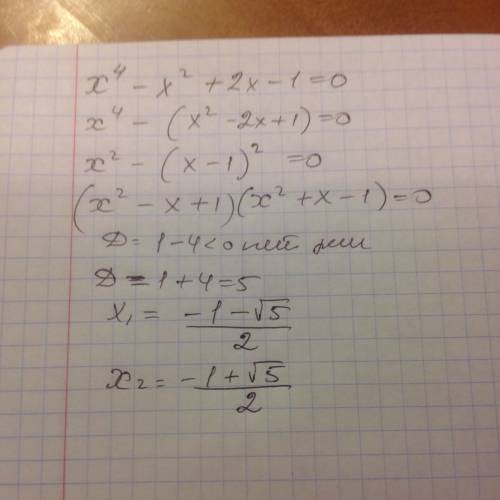 x⁴ - x² + 2x - 1 = 0
x⁴ - (x² - 2x + 1) = 0
x² - (x - 1)² = 0
(x² - x + 1)(x² + x - 1) = 0
D = 1 - 4 < 0 нет реш
D = 1 + 4 = 5
x₁ = (-1 - √5)/2
x₂ = (-1 + √5)/2